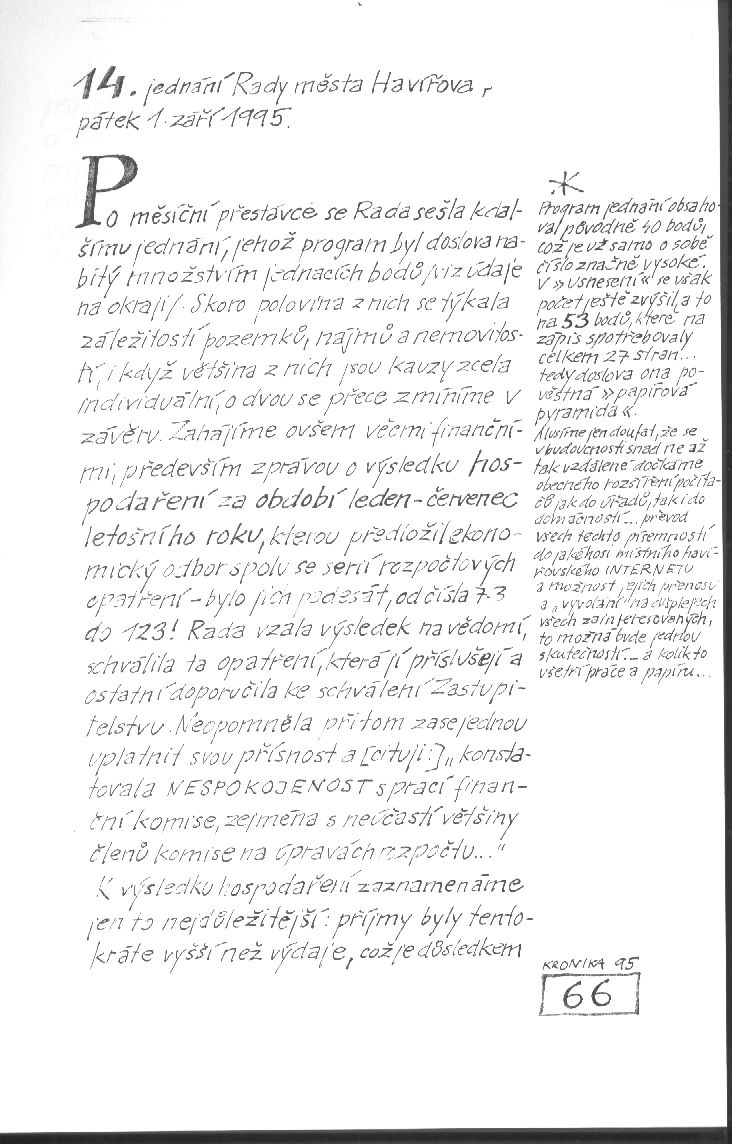 14. jednání Rady města Havířova,
pátek 1. září 1995.
Po měsíční přestávce se Rada sešla k dal-
šímu jednání, jehož program byl doslova na-
bitý množstvím jednacích bodů /viz údaje
na okraji/. Skoro polovina z nich se týkala
záležitostí pozemků, najmů a nemovitos-
tí, i když většina z nich jsou kauzy zcela
individuální, o dvou se přece zmíníme v
závěru. Zahájíme ovšem věcmi finanční-
mi, především zprávou o výsledku hos-
podaření za období leden - červenec
letošního roku, kterou předložil ekono-
mický odbor spolu se serií rozpočtových
opatření - bylo jich padesát, od čísla 73
do 123! Rada vzala výsledek na vědomí,
schválila ta opatření, která jí příslušejí a
ostatní doporučila ke schválení Zastupi-
telstvu. Neopomněla přitom zase jednou
uplatnit svou přísnost a [cituji:] „konsta-
tovala NESPOKOJENOST s prací finan-
ční komise, zejména s neúčastí většiny
členů komise na úpravách rozpočtu..."
K výsledku hospodaření zaznamenáme
jen to nejdůležitější: příjmy byly tento-
kráte vyšší než výdaje, což je důsledkem
*
Program jednání obsaho-
val původně 40 bodů,
což je už samo o sobě
číslo značně vysoké.
V »Usnesení« se však
počet ještě zvýšil, a to
na 53 bodů, které na
zápis spotřebovaly
celkem 27 stran...
tedy doslova ona po-
věstná »papírová
pyramida«.
Musíme jen doufat, že se
v budoucnosti snad ne až
tak vzdálené dočkáme
obecného rozšíření počíta-
čů jak do úřadů, tak i do
domácností... převod
všech těchto písemností
do jakéhosi místního haví-
řovského INTERNETU
a možnost jejich přenosu
a „vyvolání" na displejích
všech zainteresovaných,
to možná bude jednou
skutečností... a kolik to
ušetří práce a papíru...
KRONIKA 95
66